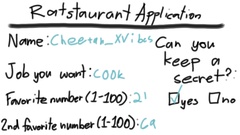 Ratstaurant Application
Name: Cheetah_XVibes
Can you keep a secret?:
Job you want: COOK
Favorite number (1-100): 21
yes no
2nd favorite number (1-100): 69